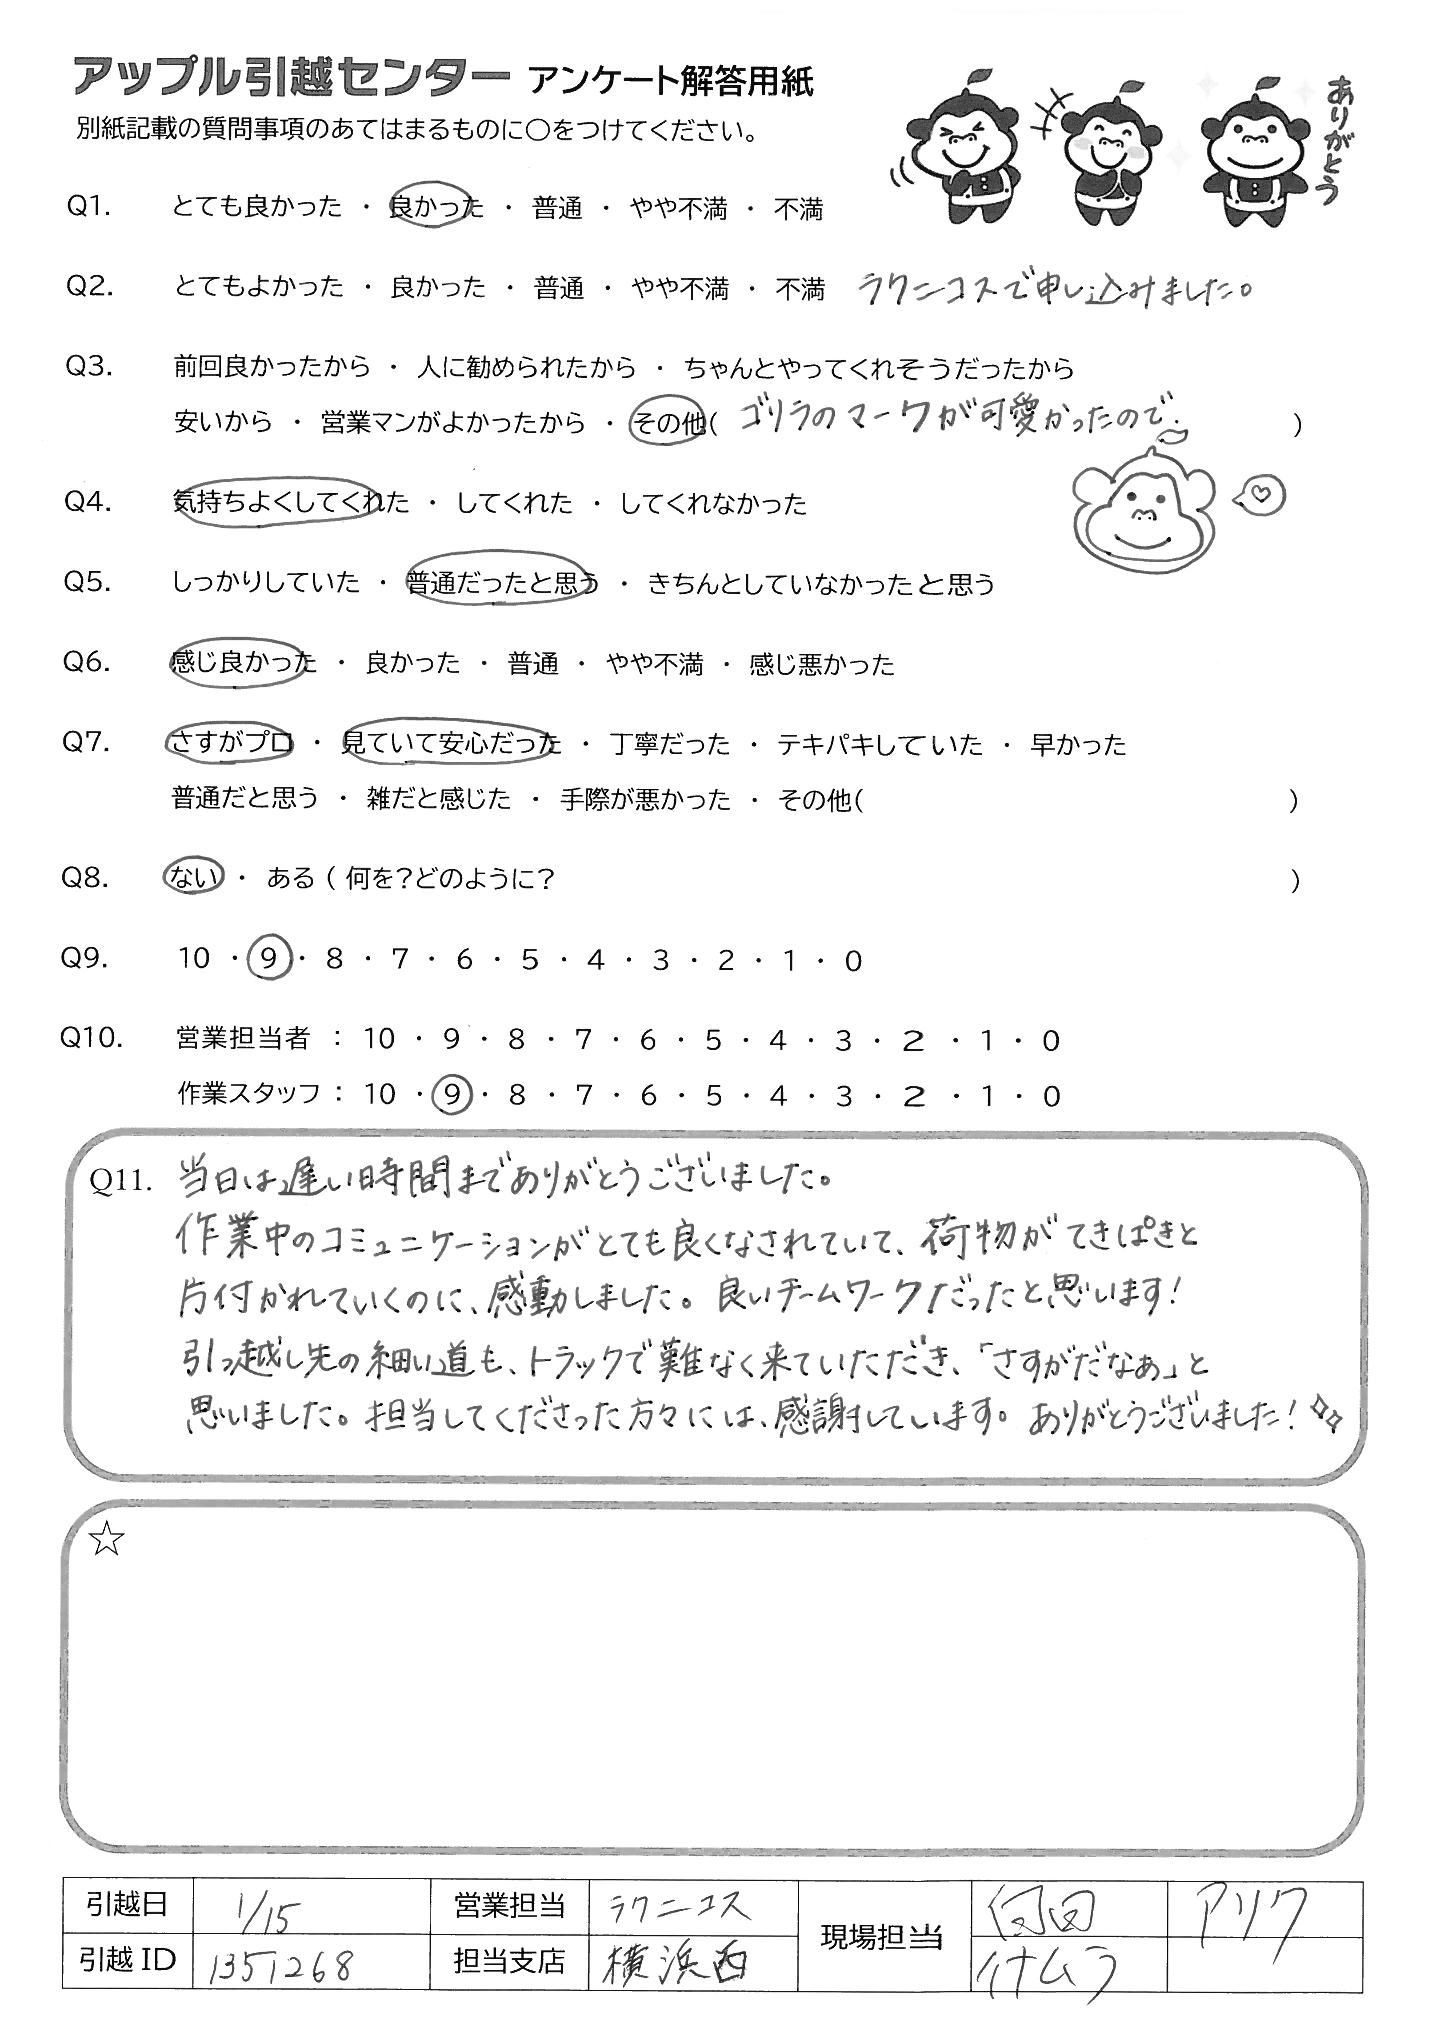 アップル引越センター アンケート解答用紙
別紙記載の質問事項のあてはまるものに○をつけてください。
ありがとう
Q1. とても良かった ・ 良かった ・ 普通 ・ やや不満 ・ 不満
Q2. とてもよかった ・ 良かった ・ 普通 ・ やや不満 ・ 不満 ラクニコスで申し込みました。
Q3. 前回良かったから ・ 人に勧められたから ・ ちゃんとやってくれそうだったから
安いから ・ 営業マンがよかったから ・ その他( ゴリラのマークが可愛かったので. )
Q4. 気持ちよくしてくれた ・ してくれた ・ してくれなかった
Q5. しっかりしていた ・ 普通だったと思う ・ きちんとしていなかったと思う
Q6. 感じ良かった ・ 良かった ・ 普通 ・ やや不満 ・ 感じ悪かった
Q7. さすがプロ ・ 見ていて安心だった ・ 丁寧だった ・ テキパキしていた ・ 早かった
普通だと思う ・ 雑だと感じた ・ 手際が悪かった ・ その他( )
Q8. ない ・ ある ( 何を?どのように? )
Q9. 10 ・ 9 ・ 8 ・ 7 ・ 6 ・ 5 ・ 4 ・ 3 ・ 2 ・ 1 ・ 0
Q10. 営業担当者 : 10 ・ 9 ・ 8 ・ 7 ・ 6 ・ 5 ・ 4 ・ 3 ・ 2 ・ 1 ・ 0
作業スタッフ : 10 ・ 9 ・ 8 ・ 7 ・ 6 ・ 5 ・ 4 ・ 3 ・ 2 ・ 1 ・ 0
Q11. 当日は遅い時間までありがとうございました。
作業中のコミュニケーションがとても良くなされていて、荷物がてきぱきと
片付かれていくのに、感動しました。良いチームワークだったと思います!
引っ越し先の細い道も、トラックで難なく来ていただき、「さすがだなぁ」と
思いました。担当してくださった方々には、感謝しています。ありがとうございました!
☆
引越日 1/15 営業担当 ラクニコス 現場担当
引越ID 1351268 担当支店 横浜西